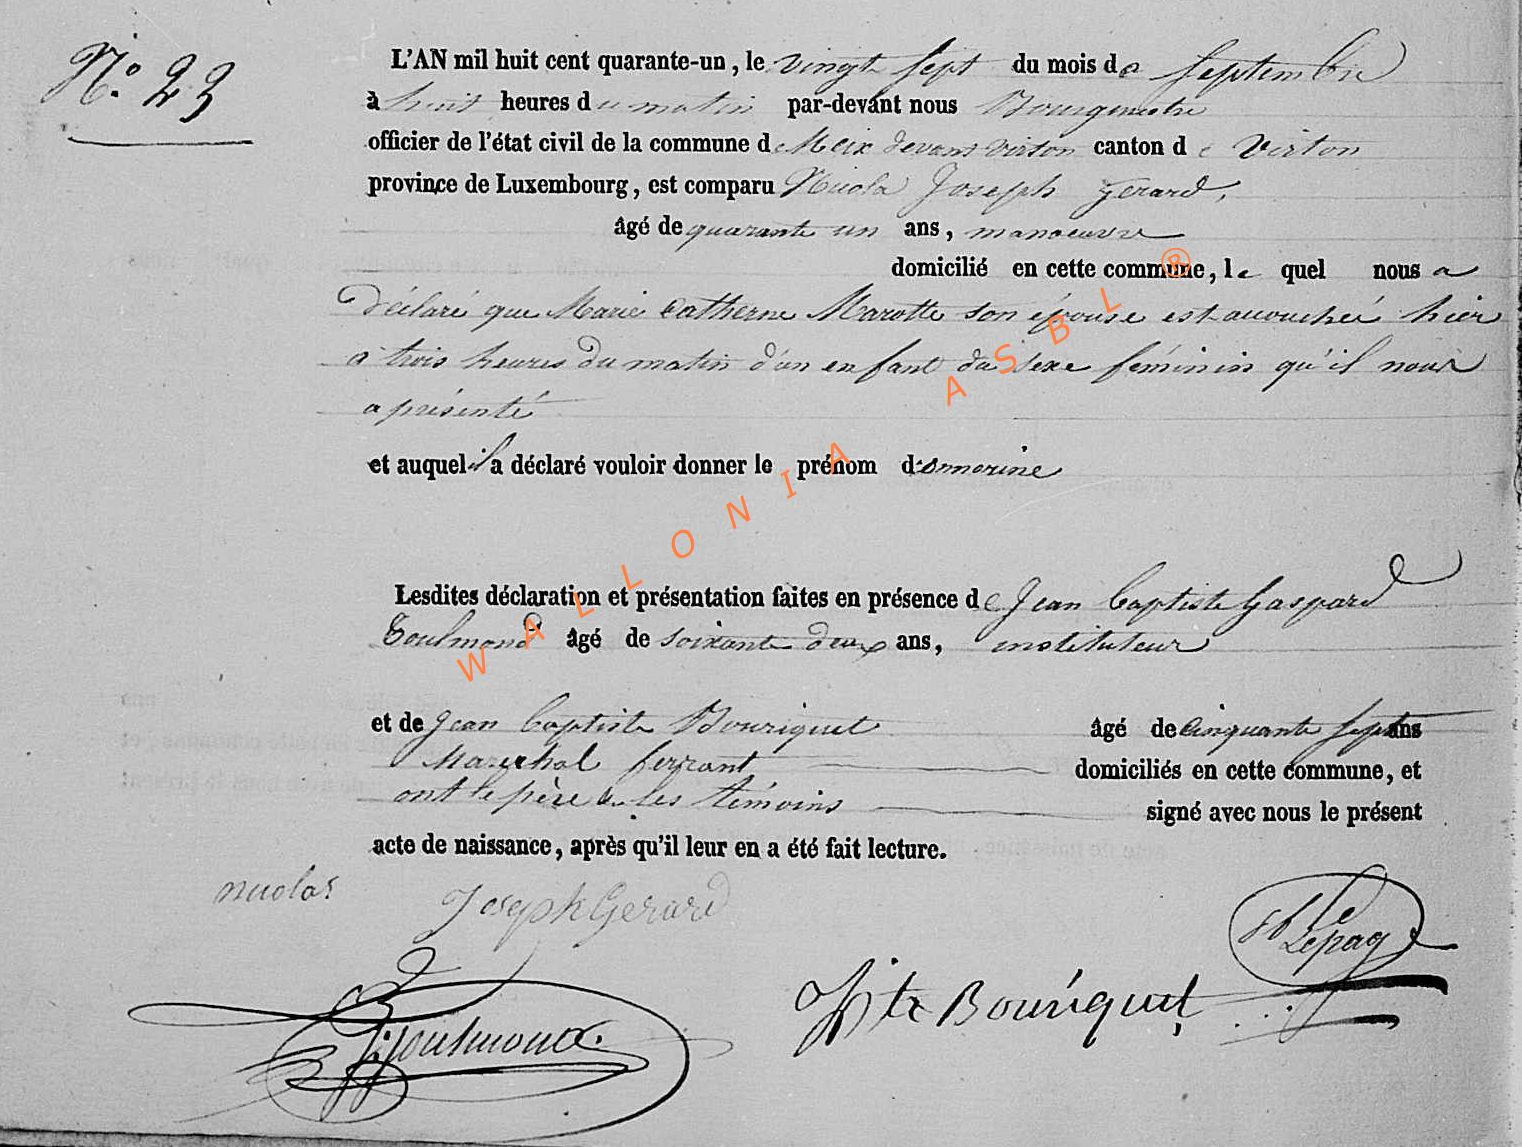 N.° 23
L'AN mil huit cent quarante-un, le vingt sept du mois de Septembre
à huit heures du matin par-devant nous Bourgmestre
officier de l'état civil de la commune de Meix devant virton canton de Virton
province de Luxembourg, est comparu Nicola Joseph Gerard,
âgé de quarante un ans, manoeuvre
domicilié en cette commune, le quel nous a
déclaré que Marie Catherne Marotte son épouse est accouchée hier
a trois heures du matin d'un enfant du sexe féminin qu'il nous
a présenté
et auquel il a déclaré vouloir donner le prénom d'
Lesdites déclaration et présentation faites en présence de Jean Baptiste Gaspard
Toulmond âgé de soixante deux ans, instituteur
et de Jean Baptiste Bouriquet âgé de cinquante sept ans
Marechal ferrant domiciliés en cette commune, et
ont le père & les témoins signé avec nous le présent
acte de naissance, après qu'il leur en a été fait lecture.
nicolas Joseph Gerard
Lepage
Bte Bouriquet
Toulmond
WALLONIA ASBL ®